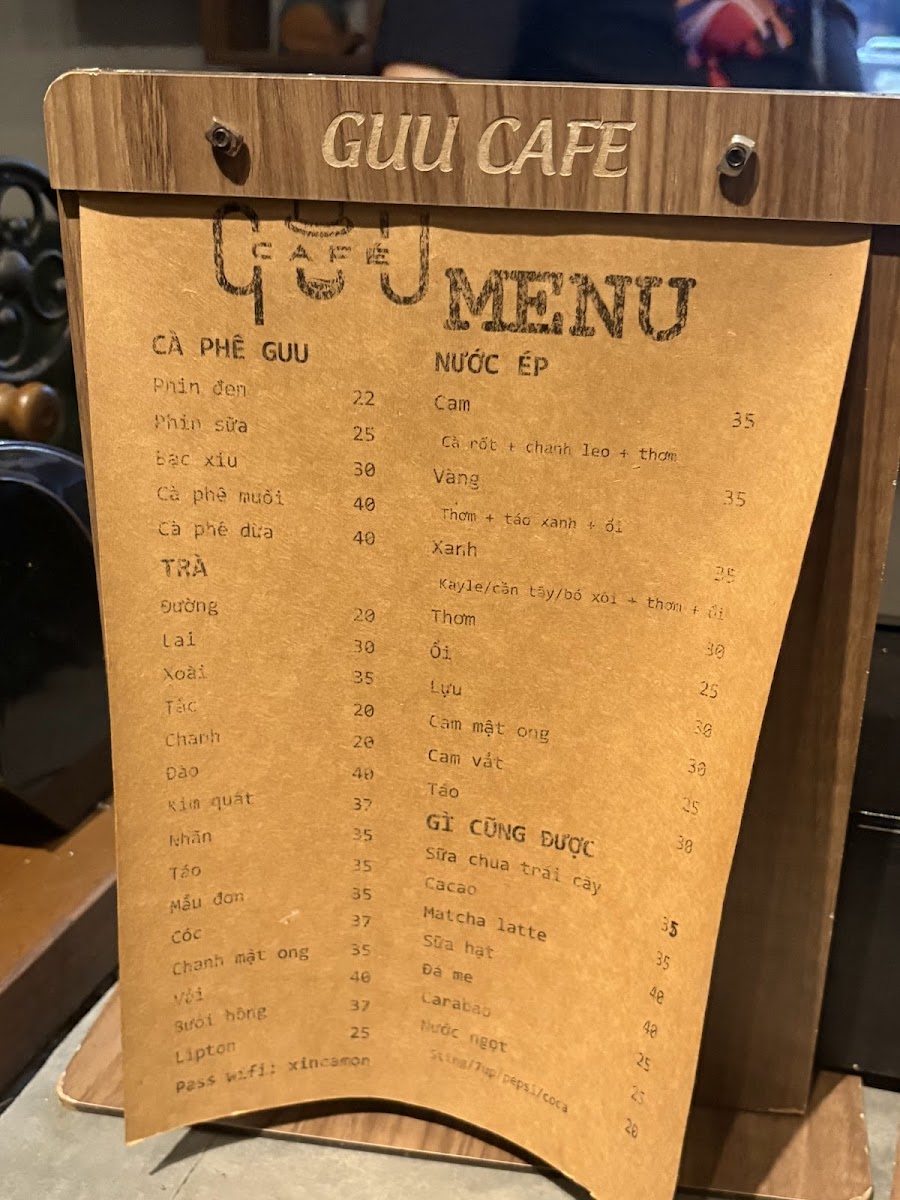 GUU CAFE
guu
CAFÉ
MENU
CÀ PHÊ GUU
Phin đen 22
Phin sữa 25
Bạc xiu 30
Cà phê muối 40
Cà phê dừa 40
TRÀ
Đường 20
Lài 30
Xoài 35
Tắc 20
Chanh 20
Đào 40
Kim quất 37
Nhãn 35
Táo 35
Mẫu đơn 35
Cóc 37
Chanh mật ong 35
Vải 40
Bưởi hồng 37
Lipton 25
Pass wifi: xincamon
NƯỚC ÉP
Cam 35
Cà rốt + chanh leo + thơm
Vàng 35
Thơm + táo xanh + ổi
Xanh 35
Kayle/cần tây/bó xôi + thơm + ổi
Thơm 30
Ổi 25
Lựu 30
Cam mật ong 30
Cam vắt 25
Táo 30
GÌ CŨNG ĐƯỢC
Sữa chua trái cây 35
Cacao 35
Matcha latte 40
Sữa hạt 40
Đá me 25
Carabao 25
Nước ngọt 20
Sting/7up/pepsi/coca